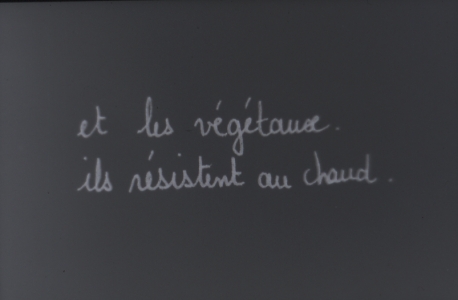 et les végétaux.
ils résistent au chaud.